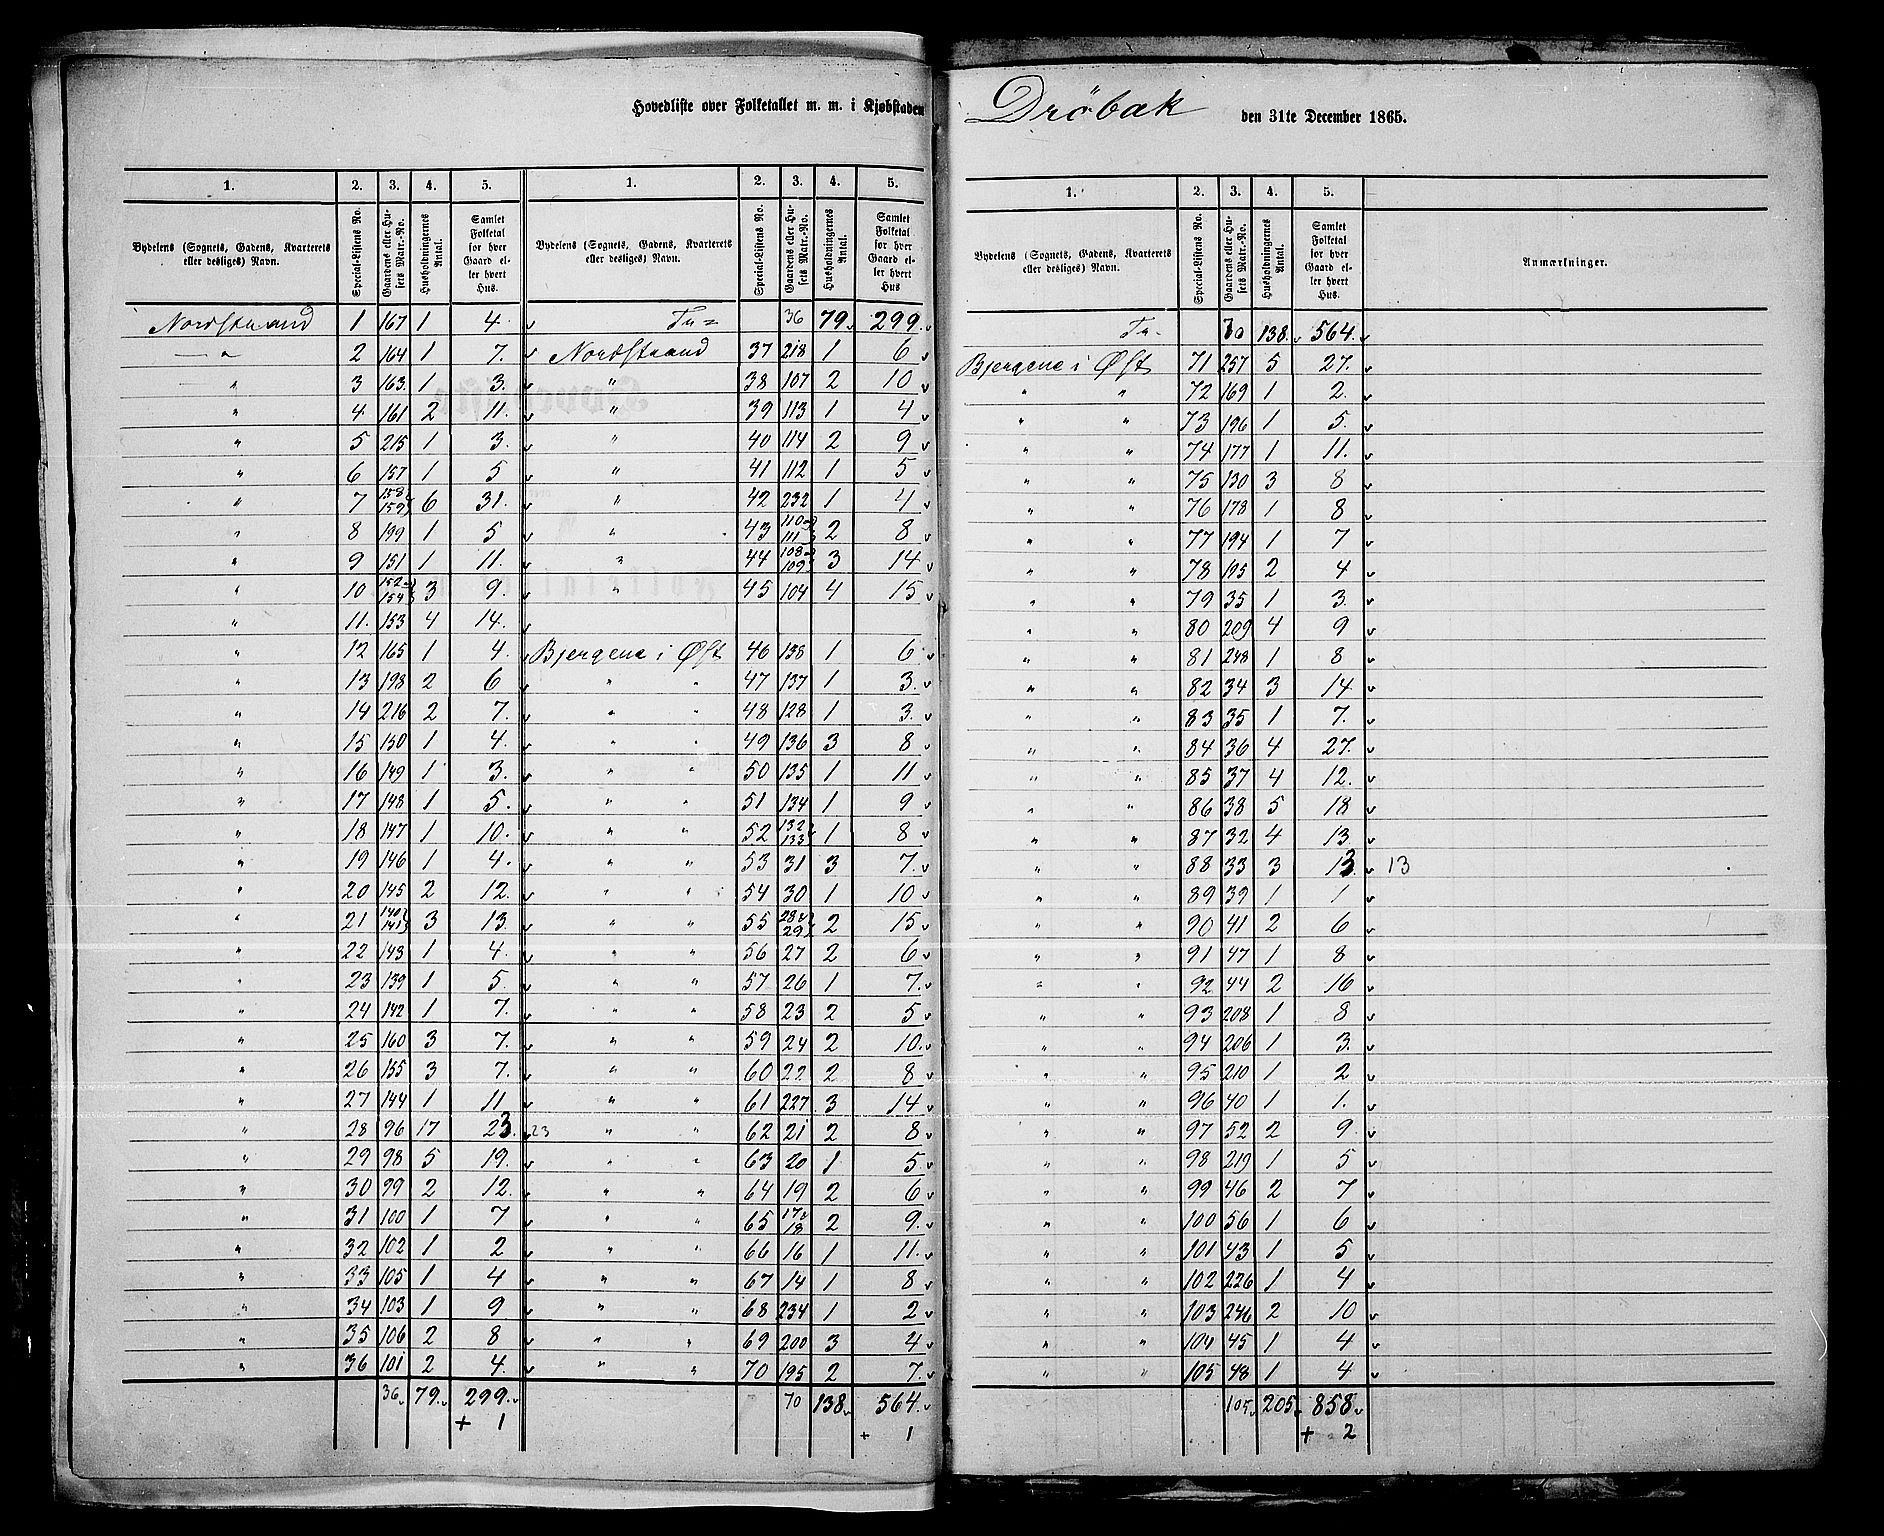 Hovedliste over Folketallet m. m. i Kjøbstaden Dröbak den 31te December 1865.
1. 2. 3. 4. 5. 1. 2. 3. 4. 5.
Bydelens (Sognets, Gadens, Kvarterets eller desliges) Navn. Special-Listens No. Gaardens eller Husets Matr.-No. Husholdningernes Antal. Samlet Folketal for hver Gaard eller hvert Hus. Bydelens (Sognets, Gadens, Kvarterets eller desliges) Navn. Special-Listens No. Gaardens eller Husets Matr.-No. Husholdningernes Antal. Samlet Folketal for hver Gaard eller hvert Hus
Nordstrand 1 167 1 4. Tr= 36 79 299.
— " 2 164 1 7. Nordstrand 37 218 1 6
" 3 163 1 3. " 38 107 2 10
" 4 161 2 11. " 39 113 1 4
" 5 215 1 3. " 40 114 2 9
" 6 157 1 5 " 41 112 1 5
" 7 158 159 6 31. " 42 232 1 4
" 8 199 1 5 " 43 110 111 2 8
" 9 151 1 11. " 44 108 109 3 14
" 10 152 154 3 9. " 45 104 4 15
" 11. 153 4 14.
" 12 165 1 4. Bjergene i Øst 46 138 1 6
" 13 198 2 6 " " 47 137 1 3.
" 14 216 2 7. " " 48 128 1 3.
" 15 150 1 4. " " 49 136 3 8
" 16 149 1 3. " " 50 135 1 11
" 17 148 1 5. " " 51 134 1 9
" 18 147 1 10. " " 52 132 133 1 8
" 19 146 1 4. " " 53 31 3 7.
" 20 145 2 12. " " 54 30 1 10
" 21 140 141 3 13. " " 55 28 29 2 15
" 22 143 1 4. " " 56 27 2 6
" 23 139 1 5. " " 57 26 1 7.
" 24 142 1 7. " " 58 23 2 5
" 25 160 3 7. " " 59 24 2 10.
" 26 155 3 7. " " 60 22. 2 8
" 27 144 1 11 " " 61 227 3 14
" 28 96 17 23. 23 " " 62 21 2 8
" 29 98 5 19. " " 63 20 1 5
" 30 99 2 12. " " 64 19 2 6
" 31 100 1 7 " " 65 17 18 2 9.
" 32 102 1 2 " " 66 16 1 11.
" 33 105 1 4 " " 67 14 1 8
" 34 103 1 9 " " 68 234 1 2
" 35 106 2 8 " " 69 200 3 4
" 36 101 2 4. " " 70 195 2 7.
36 79. 299. 70 138 564.
+ 1 + 1
1. 2. 3. 4. 5.
Bydelens (Sognets, Gadens, Kvarterets eller desliges) Navn. Special-Listens No. Gaardens eller Husets Matr.-No. Husholdningernes Antal. Samlet Folketal for hver Gaard eller hvert Hus. Anmærkninger.
Tr- 70 138. 564.
Bjergene i Øst 71 257 5 27.
" " 72 169 1 2.
" " 73 196 1 5.
" " 74 177 1 11.
" " 75 130 3 8
" " 76 178 1 8
" " 77 194 1 7
" " 78 195 2 4
" " 79 35 1 3.
" " 80 209 4 9
" " 81 248 1 8
" " 82 34 3 14
" " 83 35 1 7.
" " 84 36 4 27.
" " 85 37 4 12.
" " 86 38 5 18
" " 87 32 4 13.
" " 88 33 3 13. 13
" " 89 39 1 1
" " 90 41 2 6
" " 91 47 1 8
" " 92 44 2 16
" " 93 208 1 8
" " 94 206 1 3.
" " 95 210 1 2
" " 96 40 1 1.
" " 97 52 2 9
" " 98 219 1 5
" " 99 46 2 7
" " 100 56 1 6
" " 101 43 1 5
" " 102 226 1 4
" " 103 246 2 10
" " 104 45 1 4
" " 105 48 1 4
105 205 858
+ 2